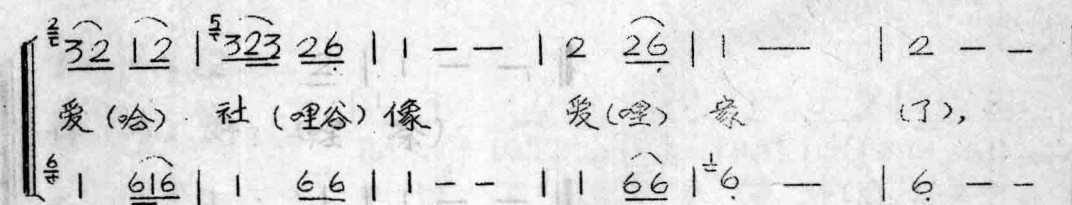 2 32 12 | 5 323 26 | 1 - - | 2 26 | 1 — | 2 - -
爱（哈）社（哩谷）像 爱（哩）家 （了），
6 1 616 | 1 66 | 1 - - | 1 66 | 1 6 — | 6 - -